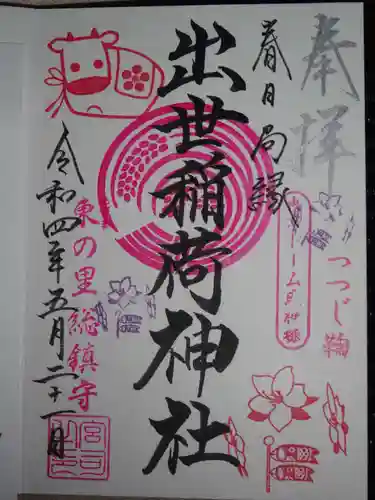 奉拝
つつじ
春日局縁
出世稲荷神社
東の里総鎮守
令和四年五月二十一日